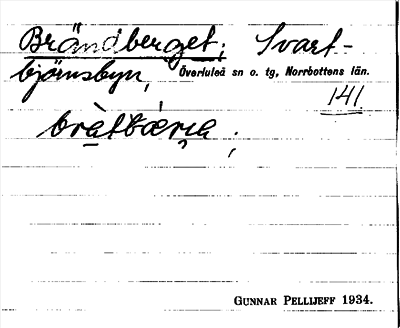 Brändberget; Svart-
björnsbyn, Överluleå sn o. tg, Norrbottens län.
141
GUNNAR PELLIJEFF 1934.